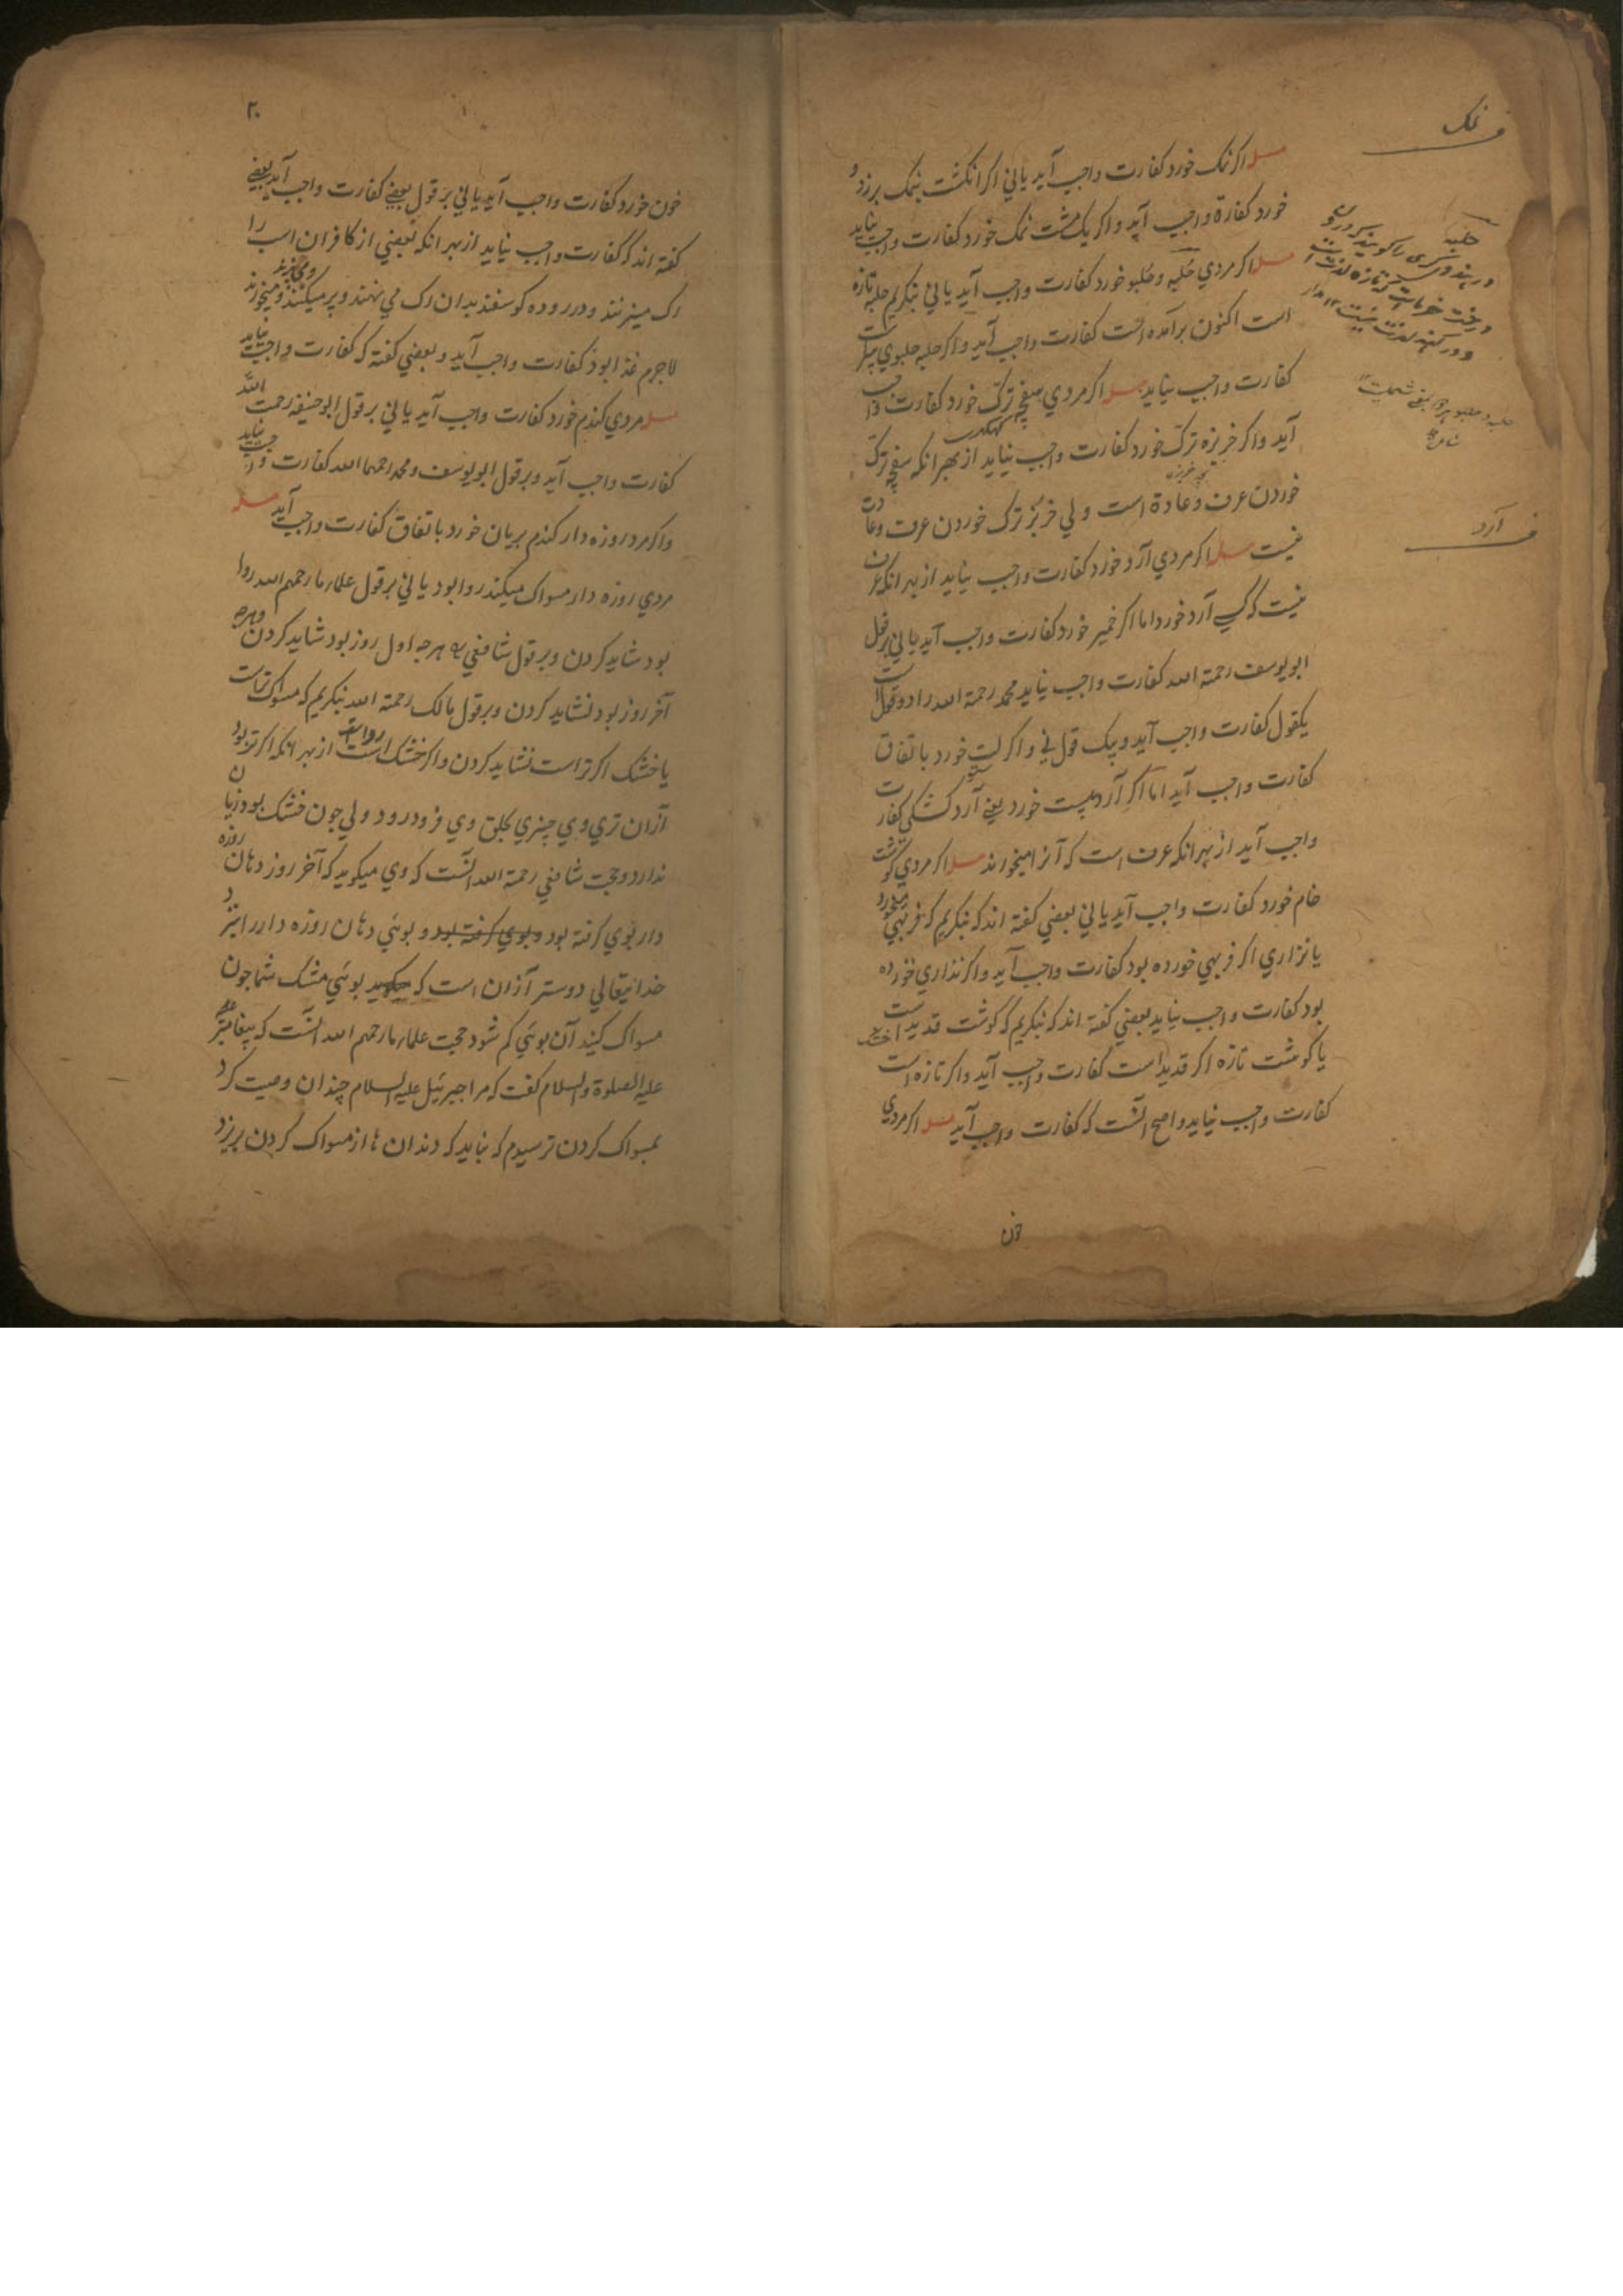 نمک
مسله اکر نمک خورد کفارت واجب آید یا لي اکر انکشت بنمک برزد و
خورد کفارة واجب آید واکر یک مشت نمک خورد کفارت واجب نیاید
مسله اکر مردي حلبه وحلبو خورد کفارت واجب آید یا لي بنکریم حلبه تازه
است اکنون برآمده است کفارت واجب آید واکر حلبه حلبوي
کفارت واجب نیاید مسله اکر مردي سفچه ترک خورد کفارت واجب
آید واکر خربزه ترک خورد کفارت واجب نیاید از بهر انکه سفچه ترک
خوردن عرف وعادة است ولي خربز ترک خوردن عرف وعادت
نیست مسله اکر مردي آرد خورد کفارت واجب نیاید از بهر انکه عرف
نیست که کسي آرد خورد اما اکر خمیر خورد کفارت واجب آید یا لي بر قول
ابویوسف رحمة الله کفارت واجب نیاید محمد رحمة الله را دو قول است
یکقول کفارت واجب آید و بیک قول ني واکر لت خورد باتفاق
کفارت واجب آید اما اکر آرد پست خورد یعني آرد کشکي کفارت
واجب آید از بهر انکه عرف است که آنرا میخورند مسله اکر مردي کوشت
خام خورد کفارت واجب آید یا لي بعضي کفته اند که بنکریم که فربهي میخورد
یا نزاري اکر فربهي خورده بود کفارت واجب آید واکر نذاري خورده
بود کفارت واجب نیاید بعضي کفته اند که بنکریم که کوشت قدید است
یا کوشت تازه اکر قدید است کفارت واجب آید واکر تازه است
کفارت واجب نیاید واصح آنست که کفارت واجب آید مسله اکر مردي
خون
حلبه
در هندوي
درخت
آرد
۲۰
خون خورد کفارت واجب آید یا لي بر قول بعضي کفارت واجب آید بعضي
کفته اند که کفارت واجب نیاید از بهر انکه بعضي از کافران اسب را
رک میزنند و در روده کوسفند بدان رک مي نهند وپر میکنند ومي پزند ومیخورند
لاجرم غذا بود کفارت واجب آید وبعضي کفته که کفارت واجب نیاید
مسله مردي کندم خورد کفارت واجب آید یا لي بر قول ابو حنیفه رحمت الله
کفارت واجب آید وبر قول ابویوسف ومحمد رحمهما الله کفارت واجب نیاید
واکر مرد روزه دار کندم بریان خورد باتفاق کفارت واجب آید مسله
مردي روزه دار مسواک میکند روا بود یا لي بر قول علماء ما رحمهم الله روا
بود شاید کردن وبر قول شافعي هرچه اول روز بود شاید کردن وهرچه
آخر روز بود نشاید کردن وبر قول مالک رحمة الله بنکریم که مسواک تر است
یا خشک اکر تر است نشاید کردن واکر خشک است روا است از بهر انکه اکر تر بود
ازان تري وي چیزي بحلق وي فرود رود ولي چون خشک بود زیان
ندارد وحجت شافعي رحمة الله آنست که وي میکوید که آخر روز دهان روزه
دار بوي کرفته بود وبوي کرفته بود و بوئي دهان روزه دار را نیز د
خدایتعالي دوستر ازان است که بوئي مشک شما چون
مسواک کنید آن بوئي کم شود حجت علماء ما رحمهم الله آنست که پیغامبر
علیه الصلوة والسلام کفت که مرا جبرئیل علیه السلام چندان وصیت کرد
بمسواک کردن ترسیدم که نباید که دندان ها از مسواک کردن بریزد